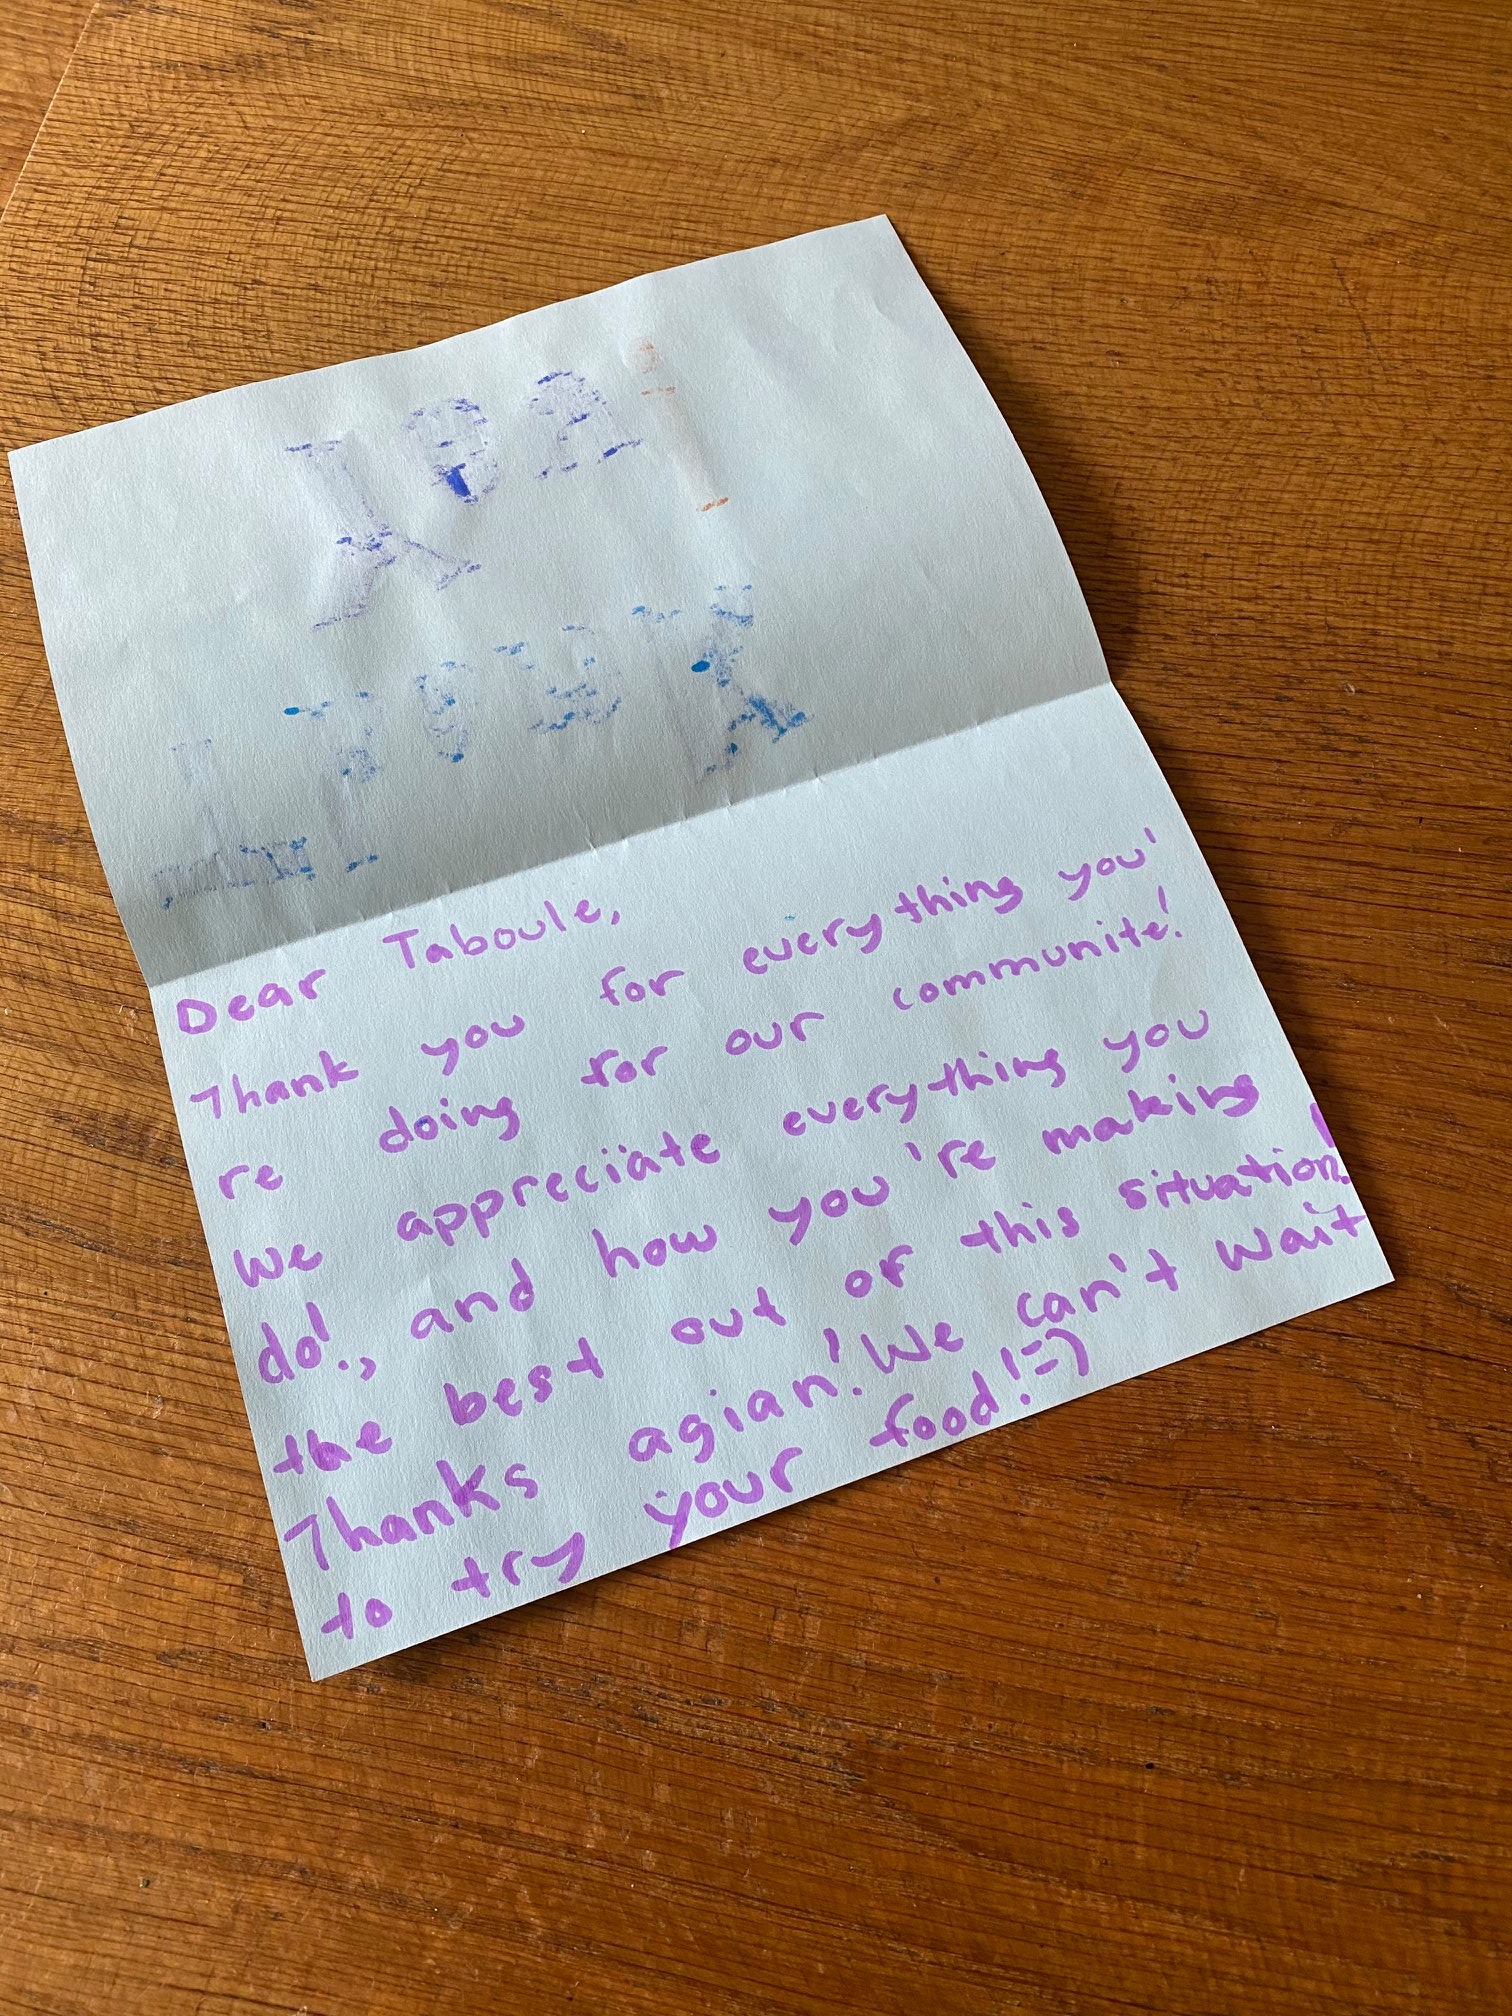 Dear Taboule,
Thank you for everything you'
re doing for our communite!
We appreciate everything you
do!., and how you're making
the best out of this situation!
Thanks agian! We can't wait
to try your food! =)